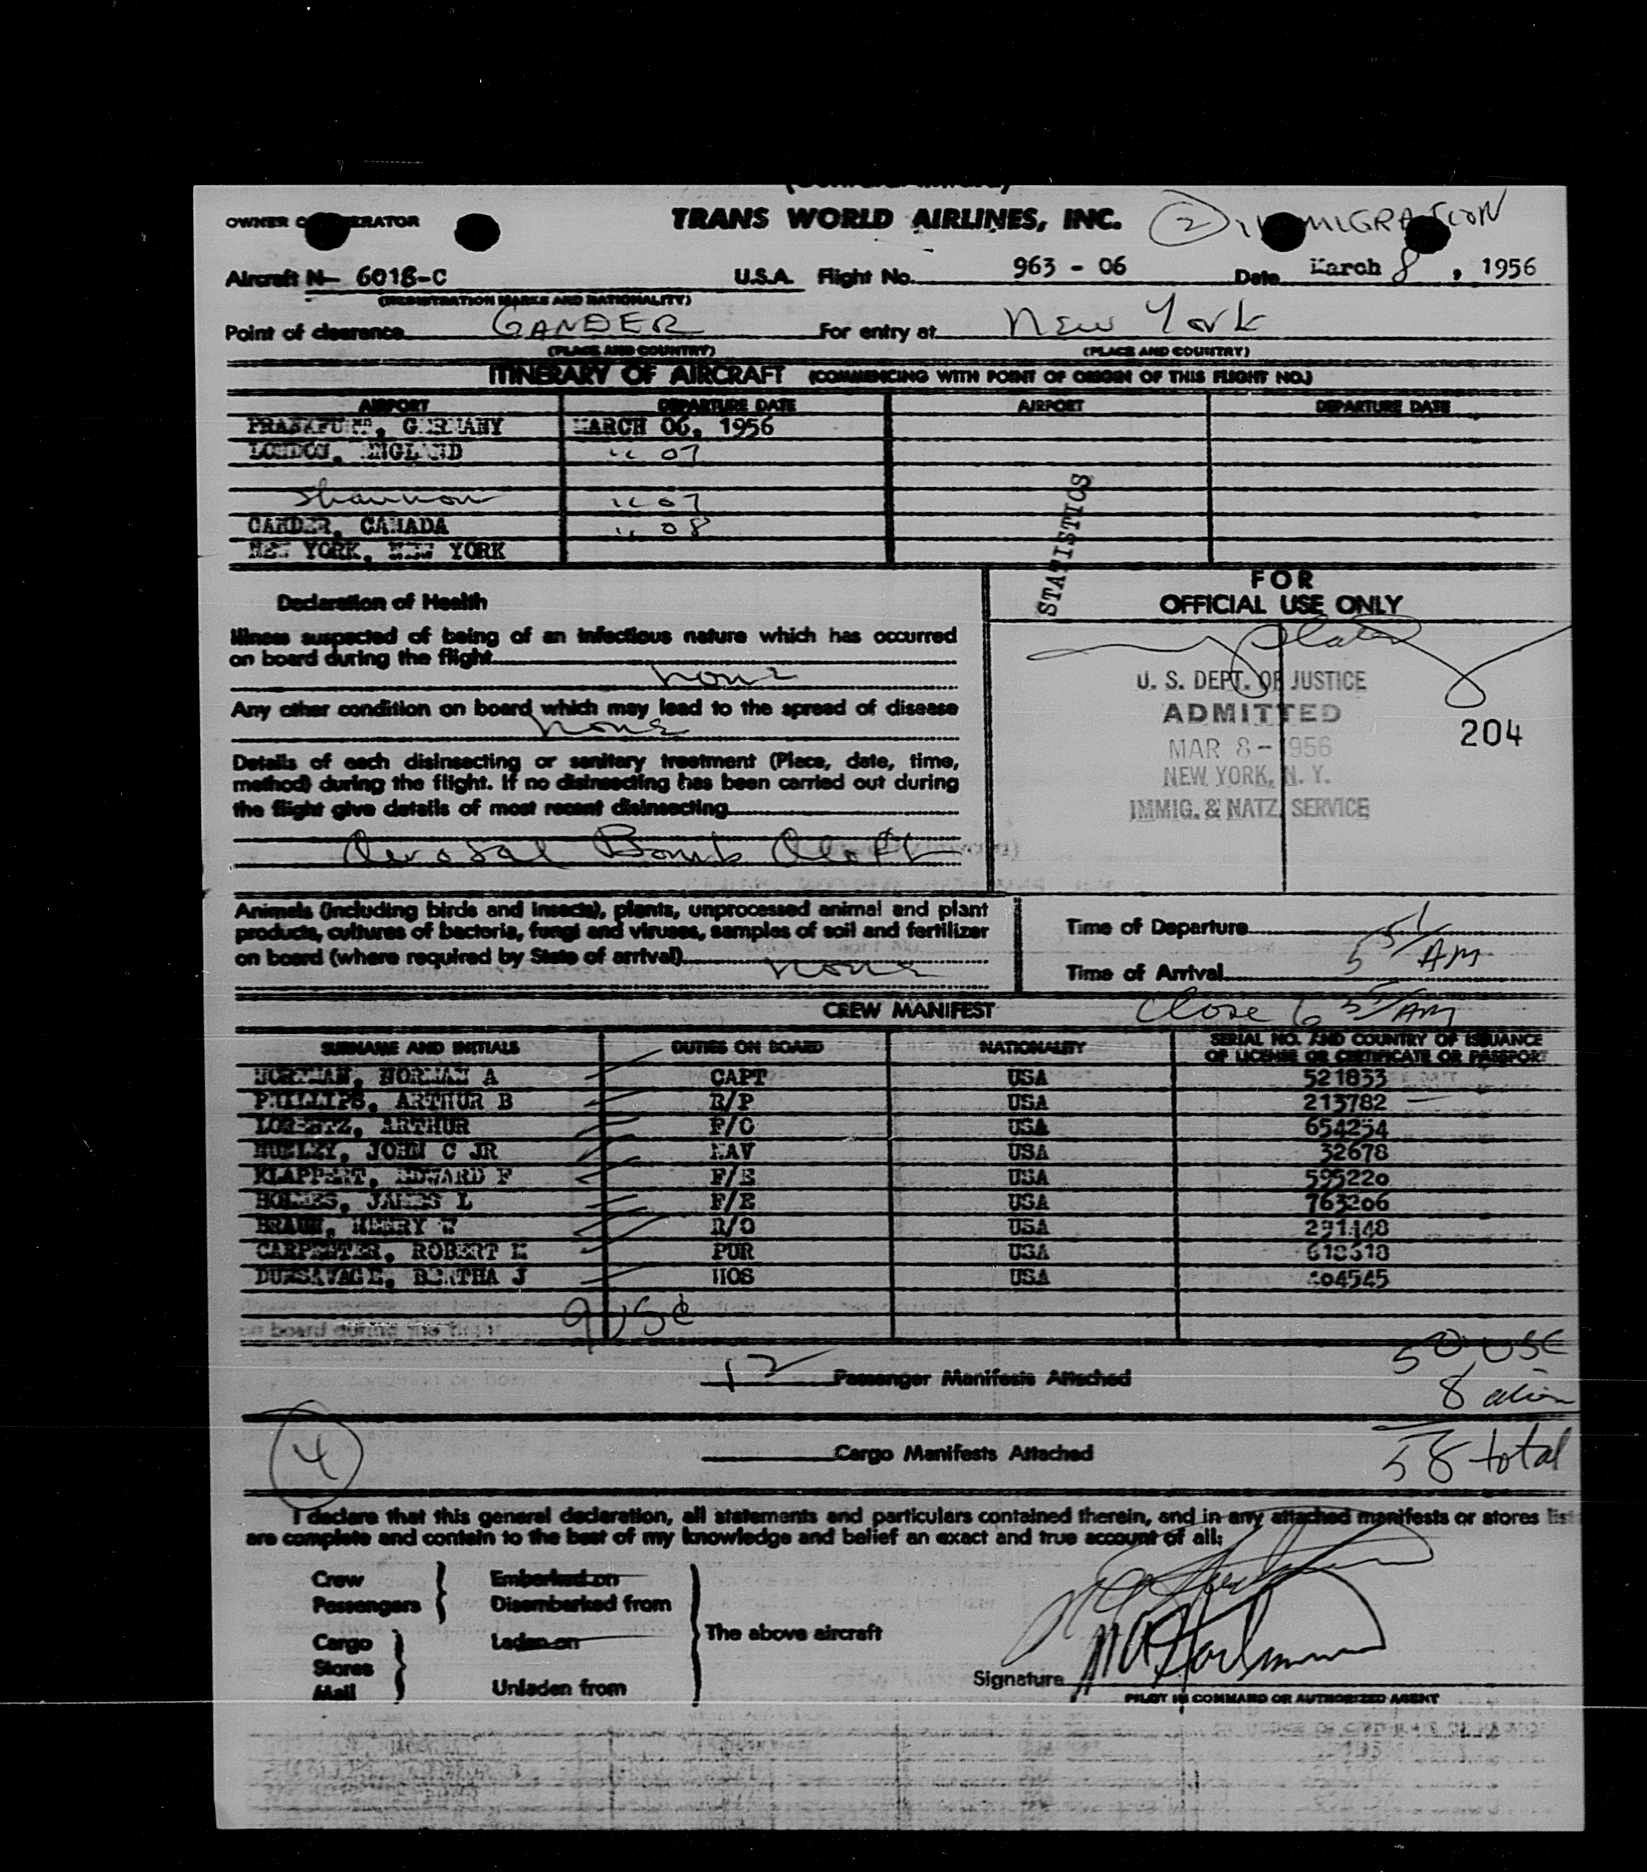 TRANS WORLD AIRLINES, INC. 2
OWNER O ERATOR
Aircraft N- 6018-C U.S.A. Flight No. 963 - 06 Date March 8, 1956
(REGISTRATION MARKS AND NATIONALITY)
Point of clearance GANDER For entry at New York
(PLACE AND COUNTRY) (PLACE AND COUNTRY)
ITINERARY OF AIRCRAFT (COMMENCING WITH POINT OF ORIGIN OF THIS FLIGHT NO.)
AIRPORT DEPARTURE DATE AIRPORT DEPARTURE DATE
FRANKFURT, GERMANY MARCH 06, 1956
LONDON, ENGLAND " 07
Shannon " 07
GANDER, CANADA " 08
NEW YORK, NEW YORK
STATISTICS
Declaration of Health
FOR
OFFICIAL USE ONLY
Illness suspected of being of an infectious nature which has occurred
on board during the flight
none
Any other condition on board which may lead to the spread of disease
none
Details of each disinsecting or sanitary treatment (Place, date, time,
method) during the flight. If no disinsecting has been carried out during
the flight give details of most recent disinsecting
Aerosal Bomb Aloft
U. S. DEPT. OF JUSTICE
ADMITTED
MAR 8 - 1956
NEW YORK, N. Y.
IMMIG. & NATZ. SERVICE
204
Animals (including birds and insects), plants, unprocessed animal and plant
products, cultures of bacteria, fungi and viruses, samples of soil and fertilizer
on board (where required by State of arrival) none
Time of Departure
Time of Arrival 5 51 AM
CREW MANIFEST Close 6 55 AM
SURNAME AND INITIALS DUTIES ON BOARD NATIONALITY SERIAL NO. AND COUNTRY OF ISSUANCE
OF LICENSE OR CERTIFICATE OR PASSPORT
NORMAN A CAPT USA 521833
PHILLIPS, ARTHUR B R/P USA 213782
LORENTZ, ARTHUR F/O USA 654254
JOHN C JR NAV USA 32678
KLAPPERT, EDWARD F F/E USA 595220
HOLMES, JAMES L F/E USA 763206
BRAUN, HENRY W R/O USA
CARPENTER, ROBERT PUR USA
BERTHA J HOS USA
9 USC
12 Passenger Manifests Attached
50 USC
8 alien
4 Cargo Manifests Attached
58 total
I declare that this general declaration, all statements and particulars contained therein, and in any attached manifests or stores list
are complete and contain to the best of my knowledge and belief an exact and true account of all:
Crew Embarked on
Passengers Disembarked from
The above aircraft
Cargo Laden on
Stores
Mail Unladen from
Signature
PILOT IN COMMAND OR AUTHORIZED AGENT